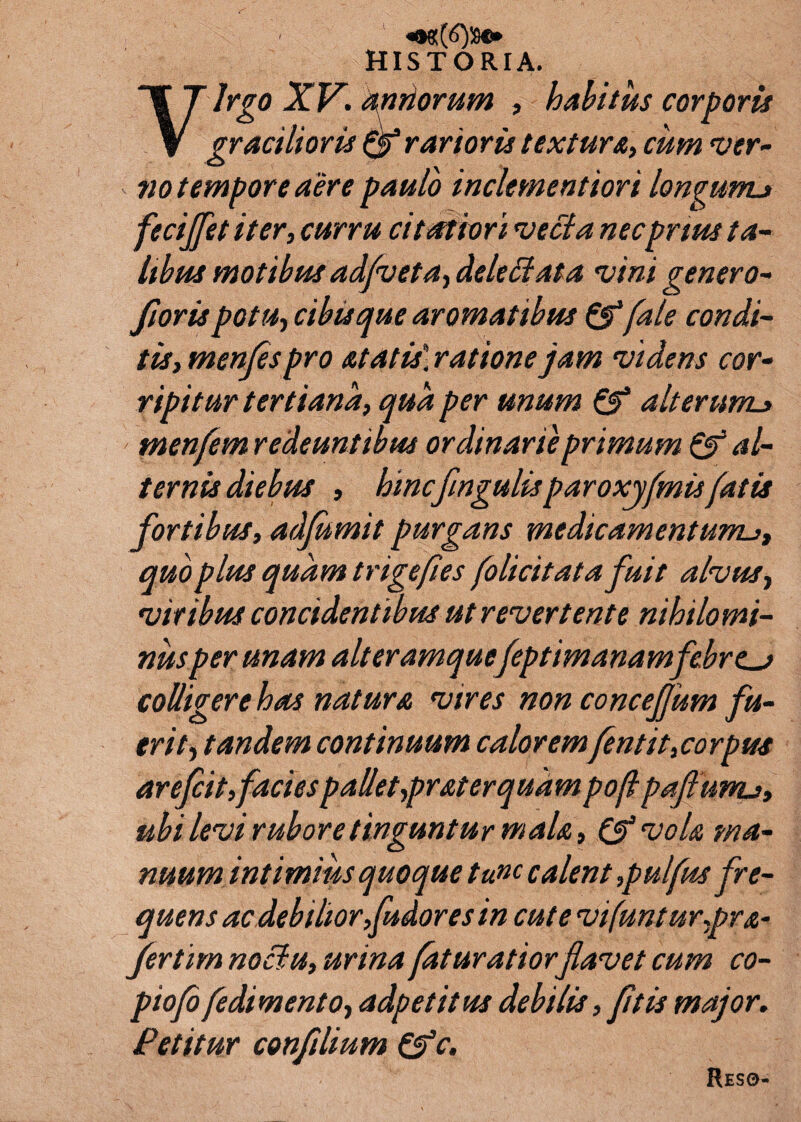 (6)
HISTORIA.
VIrgo XV. annorum , habitus corporis
gracilioris & rarioris texturæ, cùm ver-
no tempore aëre paulò inclementiori longum
fecisset iter, curru citatiori vecta nec prius ta-
libus motibus adsveta, delectata vini genero-
sioris potu, cibisque aromatibus & sale condi-
tis, menses pro ætatis ratione jam videns cor-
ripitur tertianâ, quâ per unum & alterum
mensem redeuntibus ordinariè primum & al-
ternis diebus , hinc singulis paroxysmis satis
fortibus, adsumit purgans medicamentum,
quò plus quàm trigesies solicitata fuit alvus,
viribus concidentibus ut revertente nihilomi-
nùs per unam alteramque septimanam febre
colligere has naturæ vires non concessum fu-
erit, tandem continuum calorem sentit, corpus
arescit, facies pallet, præterquàm post pastum,
ubi levi rubore tinguntur malæ, & volæ ma-
nuum intimiùs quoque tunc calent, pulsus fre-
quens ac debilior, sudores in cute visuntur, præ-
sertim noctu, urina saturatior flavet cum co-
pioso sedimento, adpetitus debilis, sitis major.
Petitur consilium &c.
RESO-